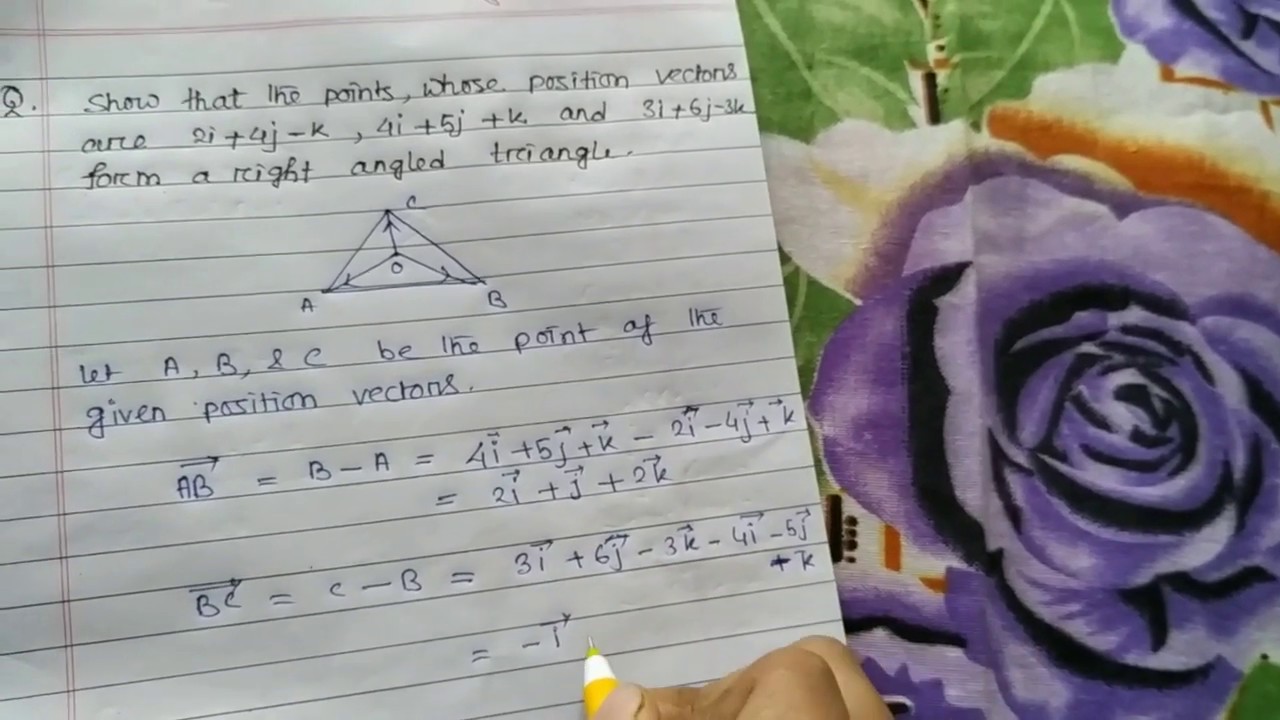 Q. Show that the points, whose position vectors
are 2i + 4j - k , 4i + 5j + k and 3i + 6j - 3k
form a right angled triangle.
C
O
A B
Let A, B, & C be the point of the
given position vectors.
AB⃗ = B - A = 4i⃗ + 5j⃗ + k⃗ - 2i⃗ - 4j⃗ + k⃗
= 2i⃗ + j⃗ + 2k⃗
BC⃗ = C - B = 3i⃗ + 6j⃗ - 3k⃗ - 4i⃗ - 5j⃗
- k⃗
= - i⃗